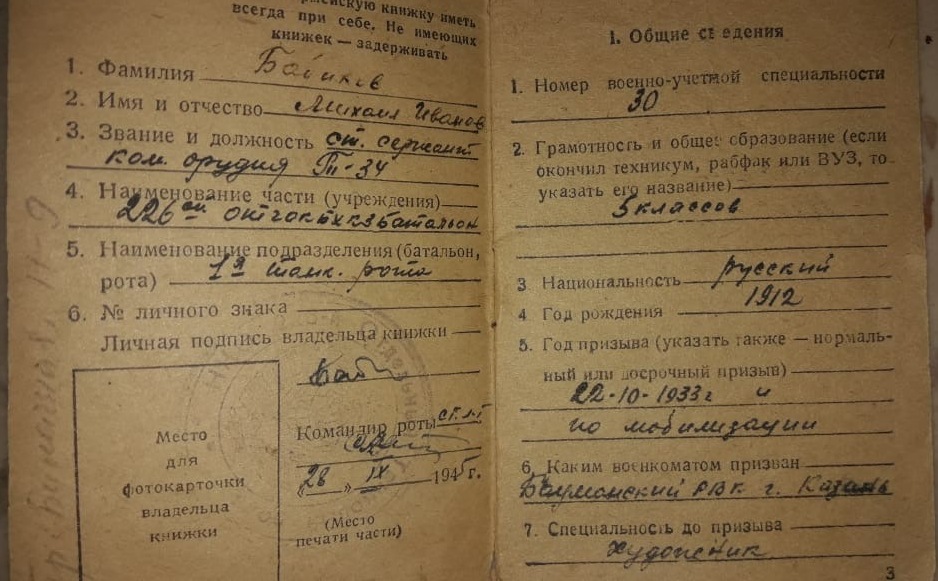 книжку иметь
всегда при себе. Не имеющих
книжек — задерживать
1. Фамилия
2. Имя и отчество Михаил Иванов
3. Звание и должность ст. сержант
ком. орудия Т-34
4. Наименование части (учреждения)
226 батальон
5. Наименование подразделения (батальон,
рота) 1я танк. рота
6. № личного знака
Личная подпись владельца книжки
Место
для
фотокарточки
владельца
книжки
Командир роты ст. л-т
"28" IX 1945г.
(Место
печати части)
1. Общие сведения
1. Номер военно-учетной специальности
30
2. Грамотность и общее образование (если
окончил техникум, рабфак или ВУЗ, то
указать его название)
5 классов
3 Национальность русский
4 Год рождения 1912
5. Год призыва (указать также — нормаль-
ный или досрочный призыв)
22-10-1933г и
по мобилизации
6. Каким военкоматом призван
Бауманский РВК г. Казань
7. Специальность до призыва
художник
3